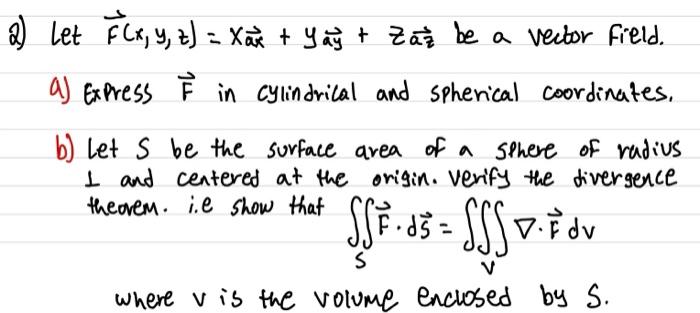 2) Let F⃗(x, y, z) = x a⃗x + y a⃗y + z a⃗z be a vector field.
a) Express F⃗ in cylindrical and spherical coordinates.
b) Let S be the surface area of a sphere of radius
1 and centered at the origin. Verify the divergence
theorem. i.e show that ∬_S F⃗ · dS⃗ = ∭_V ∇ · F⃗ dv
where v is the volume enclosed by S.